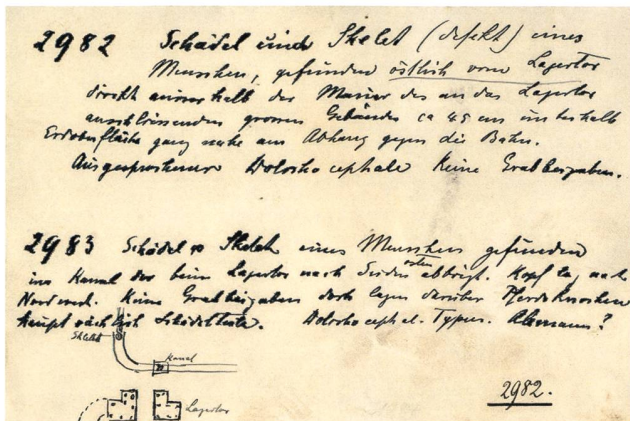 2982 Schädel und Skelet (defekt) eines
Menschen, gefunden östlich vom Lagertor
direkt ausserhalb der Mauer des an das Lagertor
anschliessenden grossen Gebäudes ca 45 cm unterhalb
Erdoberfläche ganz nahe am Abhang gegen die Bahn.
Ausgesprochener Dolichocephale Keine Grabbeigaben.
2983 Schädel & Skelet eines Menschen gefunden
im Kanal der beim Lagertor nach Süden abbiegt. Kopf lag nach
osten
Nordwest. Keine Grabbeigaben doch lagen darüber Pferdeknochen
hauptsächlich Schädelteile. Dolichocephal. Typus. Alemanne?
Skelett
Kanal
Lagertor
2982.